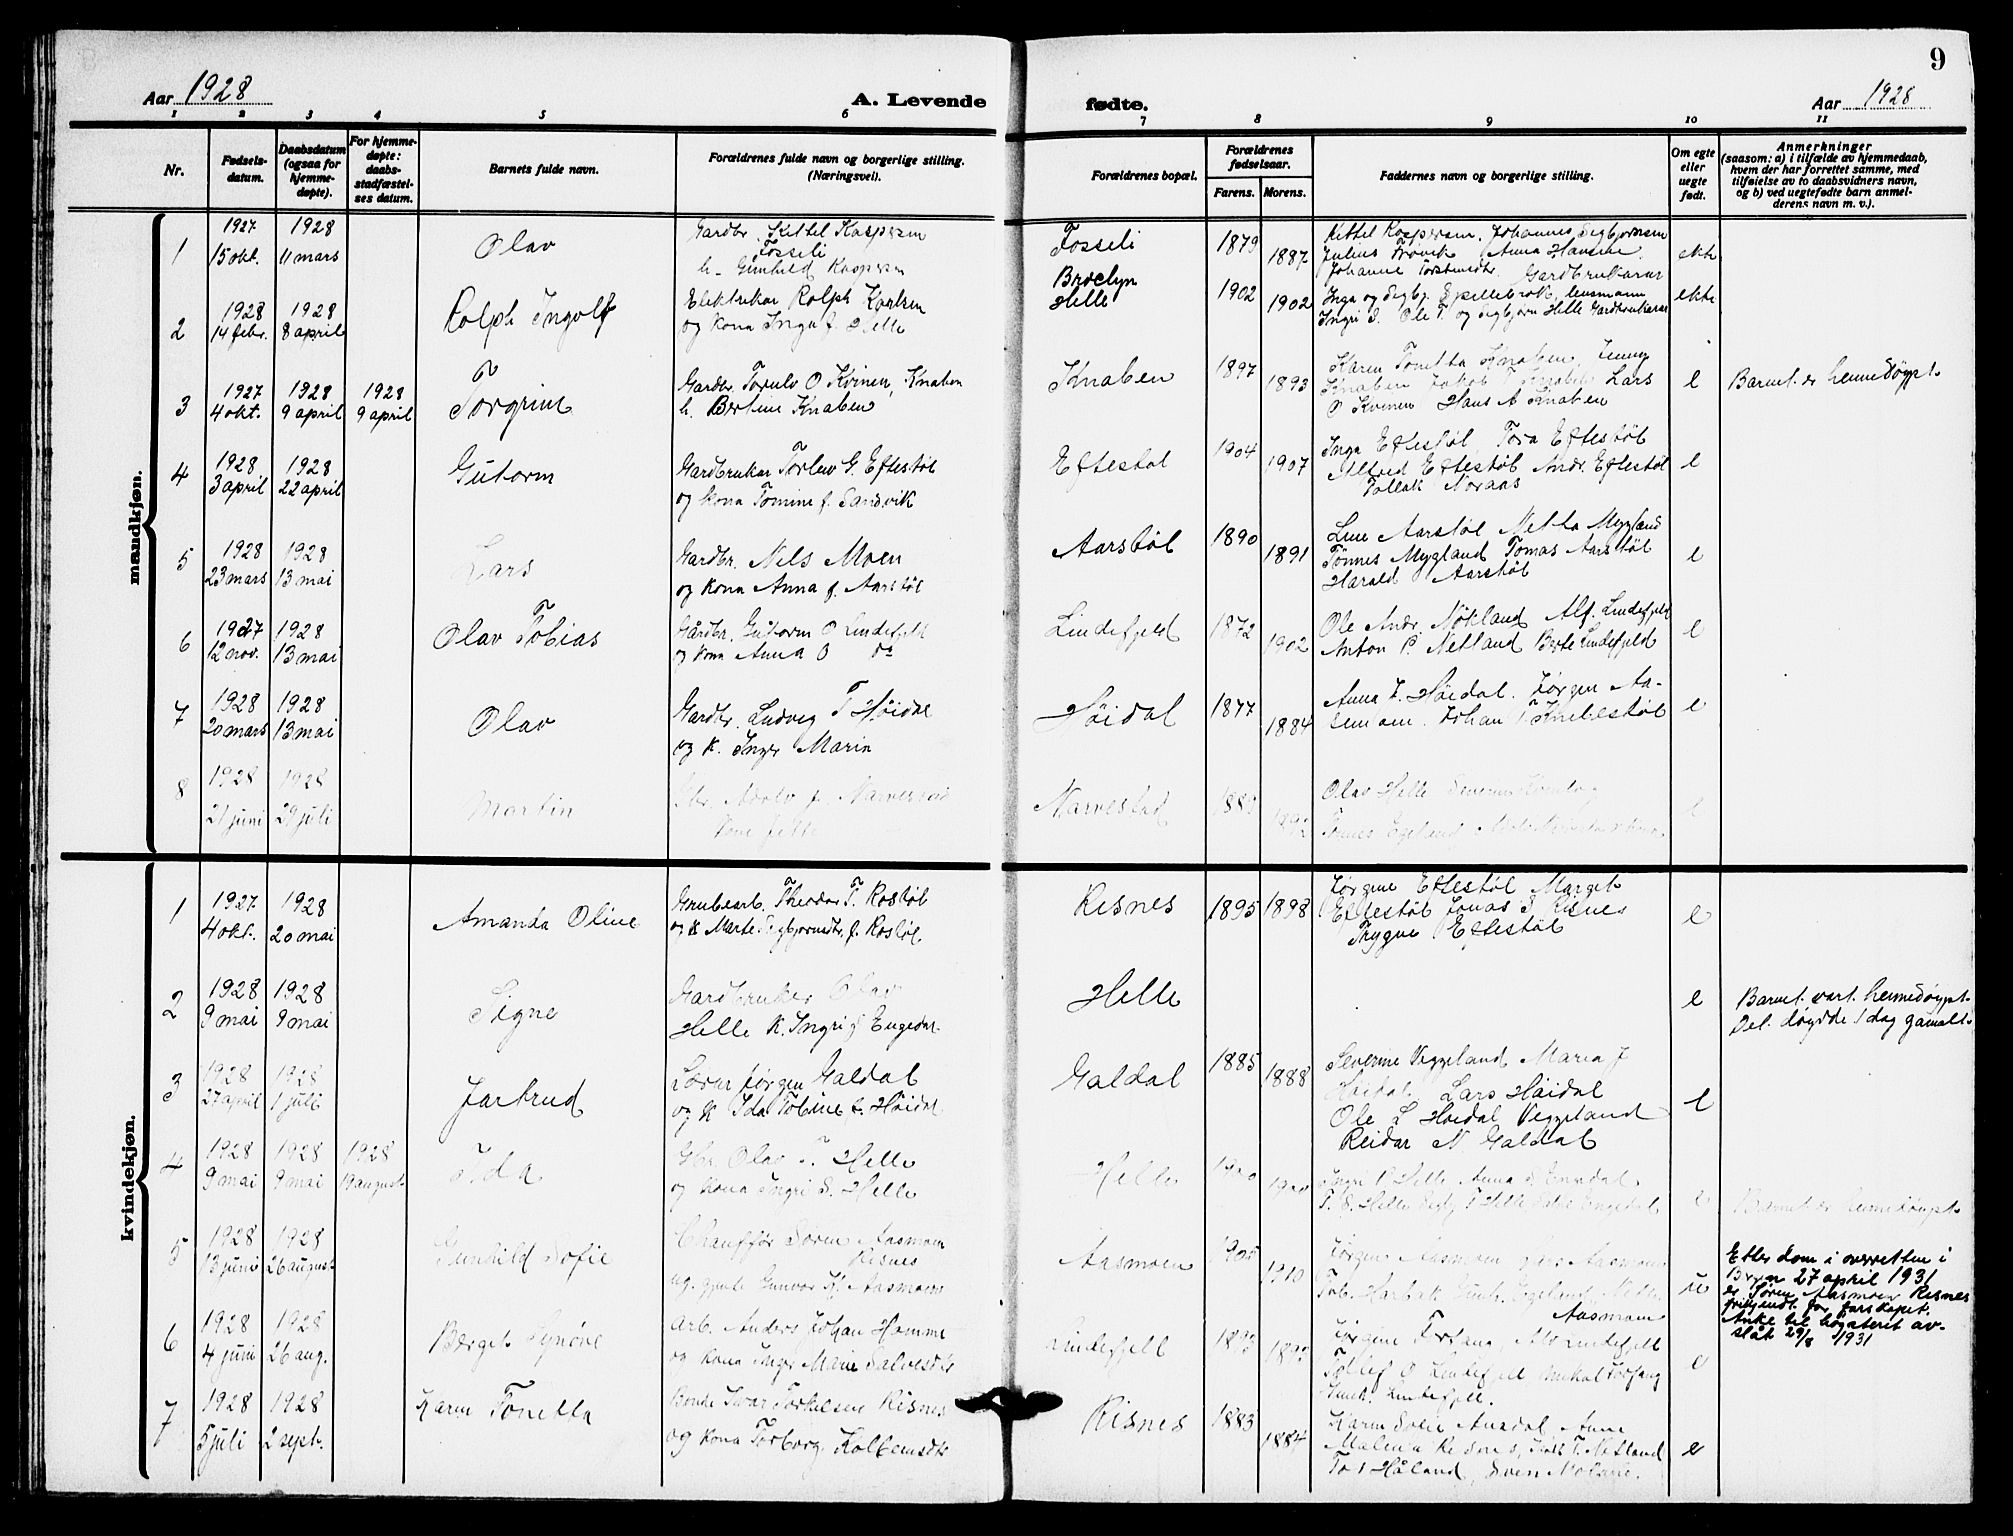 9
Aar 1928
A. Levende
fødte.
Aar 1928
1 2 3 4 5 6 7 8 9 10 11
Nr.
Fødsels-
datum.
Daabsdatum
(ogsaa for
hjemme-
døpte).
For hjemme-
døpte:
daabs-
stadfæstel-
ses datum.
Barnets fulde navn.
Forældrenes fulde navn og borgerlige stilling.
(Næringsvei).
Forældrenes bopæl.
Forældrenes
fødselsaar.
Farens. Morens.
Faddernes navn og borgerlige stilling.
Om egte
eller
uegte
født.
Anmerkninger
(saasom: a) i tilfælde av hjemmedaab,
hvem der har forrettet samme, med
tilføielse av to daabsvidners navn,
og b) ved uegtefødte barn anmel-
derens navn m. v.).
mandkjøn.
1
1927
15 okt.
1928
11 mars
Olav
Gardbr. Kittel Kaspersen
Fosseli
h. Gunhild Kaspersen
Fosseli
1879
1887
Kittel Kaspersen. Johannes Sigbjørnsen
Julius Trövik Anna Hansine.
Johanne Torstensdtr. Gardbrukarar
ekte
2
1928
14 febr.
1928
8 april
Rolph Ingolf
Elektrikar Rolph Karlsen
og kona Inga f. Helle
Broclyn
Helle
1902
1902
Inga og Sigbj. Espellebrok, lensmann
Ingri S. Ole T. og Sigbjørn Helle Gardbrukarar
ekte
3
1927
4 okt.
1928
9 april
1928
9 april
Torgrim
Gardbr. Torulv O Kvinen, Knaben
h. Bertine Knaben
Knaben
1897
1893
Karen Tonetta Knaben, Jenny
Knaben Jakob T Knaben Lars
O Kvinen Hans A Knaben
e
Barnet er heimedöypt.
4
1928
3 april
1928
22 april
Gutorm
Gardbrukar Torlav G. Eftestöl
og kona Tomine f. Sandvik
Eftestöl
1904
1907
Inga Eftestöl, Tora Eftestöl
Alfred Eftestöl Andr. Eftestöl
Tollak Noraas
e
5
1928
23 mars
1928
13 mai
Lars
Gardbr. Nels Moen
og kona Anna f. Aarstöl
Aarstöl
1890
1891
Line Aarstöl Netta Mygland
Tönnes Mygland Tomas Aarstöl
Harald Aarstöl
e
6
1927
12 nov.
1928
13 mai
Olav Tobias
Gårdbr. Gutorm O Lindefjeld
og kona Anna O do
Lindefjeld
1872
1902
Ole Andr. Nökland Alf. Lindefjeld
Anton P. Netland Berte Lindefjeld
e
7
1928
20 mars
1928
13 mai
Olav
Gardbr. Ludvig T Höidal
og k. Inger Marin
Höidal
1877
1884
Anna J. Höidal. Jörgen Aa-
senom. Johan T Knibestöl
e
8
1928
21 juni
1928
29 juli
Martin
Gbr. Adolv J. Narvestad
Kone Jette
Narvestad
Olav Helle
Tönnes Egeland
e
kvindekjøn.
1
1927
4 okt.
1928
20 mai
Amanda Oline
Grubearb. Theodor T. Rostöl
og k Marte Sigbjørnsdtr. f. Rostöl
Risnes
1895 1898
Jörgine Eftestöl Margit
Eftestöl Jonas S Risnes
Trygve Eftestöl
e
2
1928
9 mai
1928
9 mai
Signe
Gardbruker Olav
Helle k. Ingri f Engedal
Helle
e
Barnet vart heimedöypt.
Det döydde 1 dag gamalt.
3
1928
27 april
1928
1 juli
Jartrud
Lærar Jörgen Galdal
og k Ida Tobine f. Höidal
Galdal
1885
1888
Severine Veggeland Maria J
Höidal Lars Höidal
Ole L Höidal Veggeland
Reidar N Galdal
e
4
1928
9 mai
1928
9 mai
1928
19 august
Ida
Gbr. Olav T. Helle
og kona Ingri S. Helle
Helle
Ingri P Helle Anna S Engedal
T. S. Helle Sigbj T Helle Engedal
e
Barnet er heimedöypt.
5
1928
13 juni
1928
26 august
Gunhild Sofie
Chauffør Sören Aasmoen
Risnes
ug. gjente Gunvor Kj. Aasmoen
Aasmoen
1910
Jörgen Aasmoen Lars Aasmoen
Aasmoen
ue
Etter dom i overretten i
Bergen 27 april 1931
er Sören Aasmoen Risnes
frikjendt for farskapet.
Anke til høgsterett av-
slåt 29/8 1931
6
1928
4 juni
1928
26 aug.
Berget Synöve
Arb. Anders Johan Homme
og kona Inger Marie Salvesdtr
Lindefjell
1893
Jörgine Forfang, Lindefjell
Tollef O Lindefjell, Mikal Forfang
Lindefjell.
e
7
1928
5 juli
1928
2 sept.
Karen Tonetta
Bonde Ivar Torkelsen Risnes
og kona Torborg Kolbeinsdtr
Risnes
1883
1884
Karen Sofie Ausdal, Anna
Malena Risnes, T. Netland
Håland, Sven
e